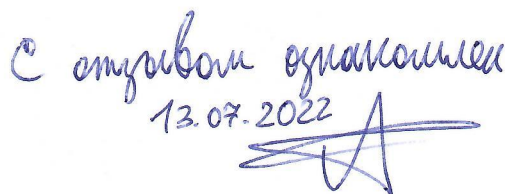 С отзывом ознакомлен
13.07.2022